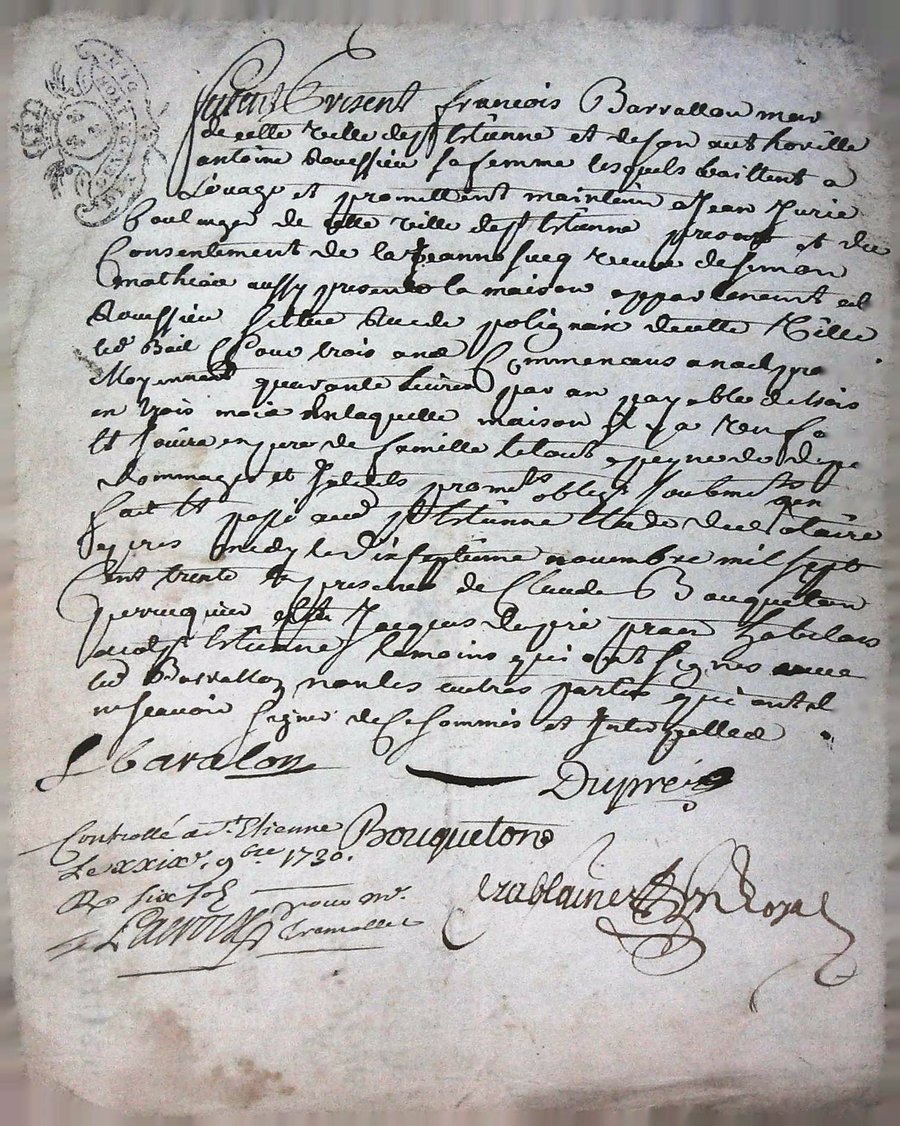 furent présent françois Barrallon mar
de cette ville de St Etienne et de son authorité
antoine Roussieu sa femme lesquels baillent a
Louage et promettent maintenir a Jean Jurie
boulanger de cette ville de St Etienne present et du
Consentement de la Jeanne veuve de simon
mathieu aussy presente la maison appartenant
Roussieu Sittuée Rue de polignais de cette Ville
led Bail Pour trois ans Commencans a
Moyennant quarante Livres par an payable de trois
en trois mois En laquelle maison Il
Et Jouira en pere de famille le tout a peyne de
Dommages et promets oblig soubmis
fait Et passé aud St Etienne Etude du Notaire
apres midy le Dixseptième novembre mil sept
Cent trente En presence de Claude Bouqueton
perruquier et Jacques dupré habitans
aud St Etienne temoins qui ont signés avec
led Barrallon non les autres parties qui ont d
ne scavoir signer de ce sommés et Interpelleés
f baralon
Dupré
Bouqueton
Controllé a St Etienne
Le XXIXe 9bre 1730.
R six sol
pour mr
Tremollet
nre Royal